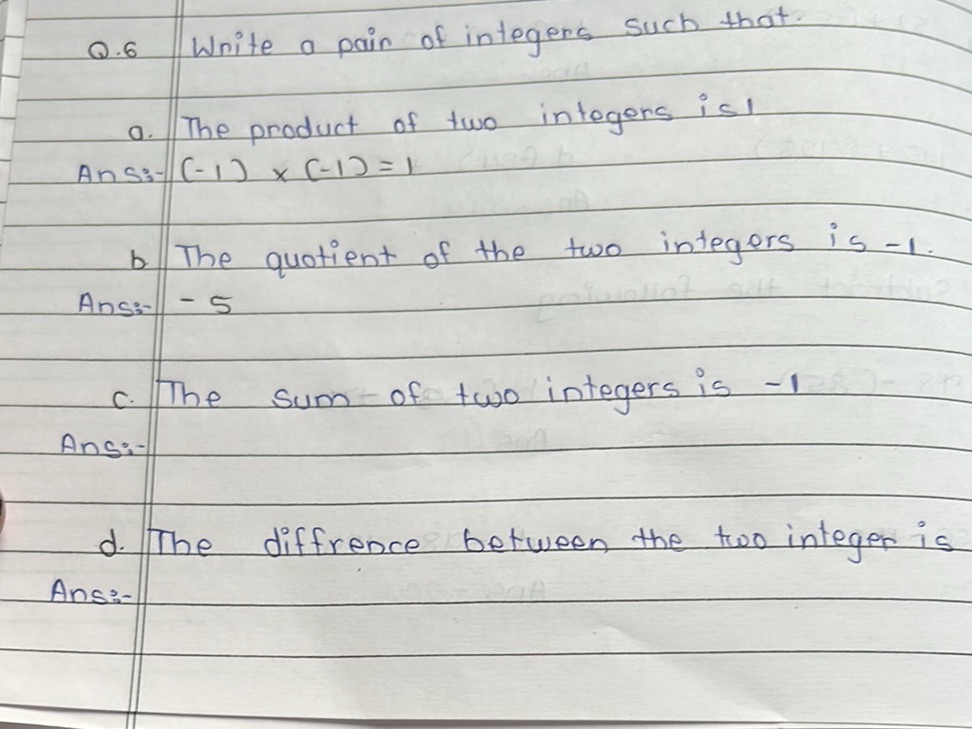 Q.6 Write a pair of integers such that.
a. The product of two integers is 1
Ans:- (-1) × (-1) = 1
b The quotient of the two integers is -1.
Ans:- - 5
c. The sum of two integers is -1
Ans:-
d. The diffrence between the two integer is
Ans:-